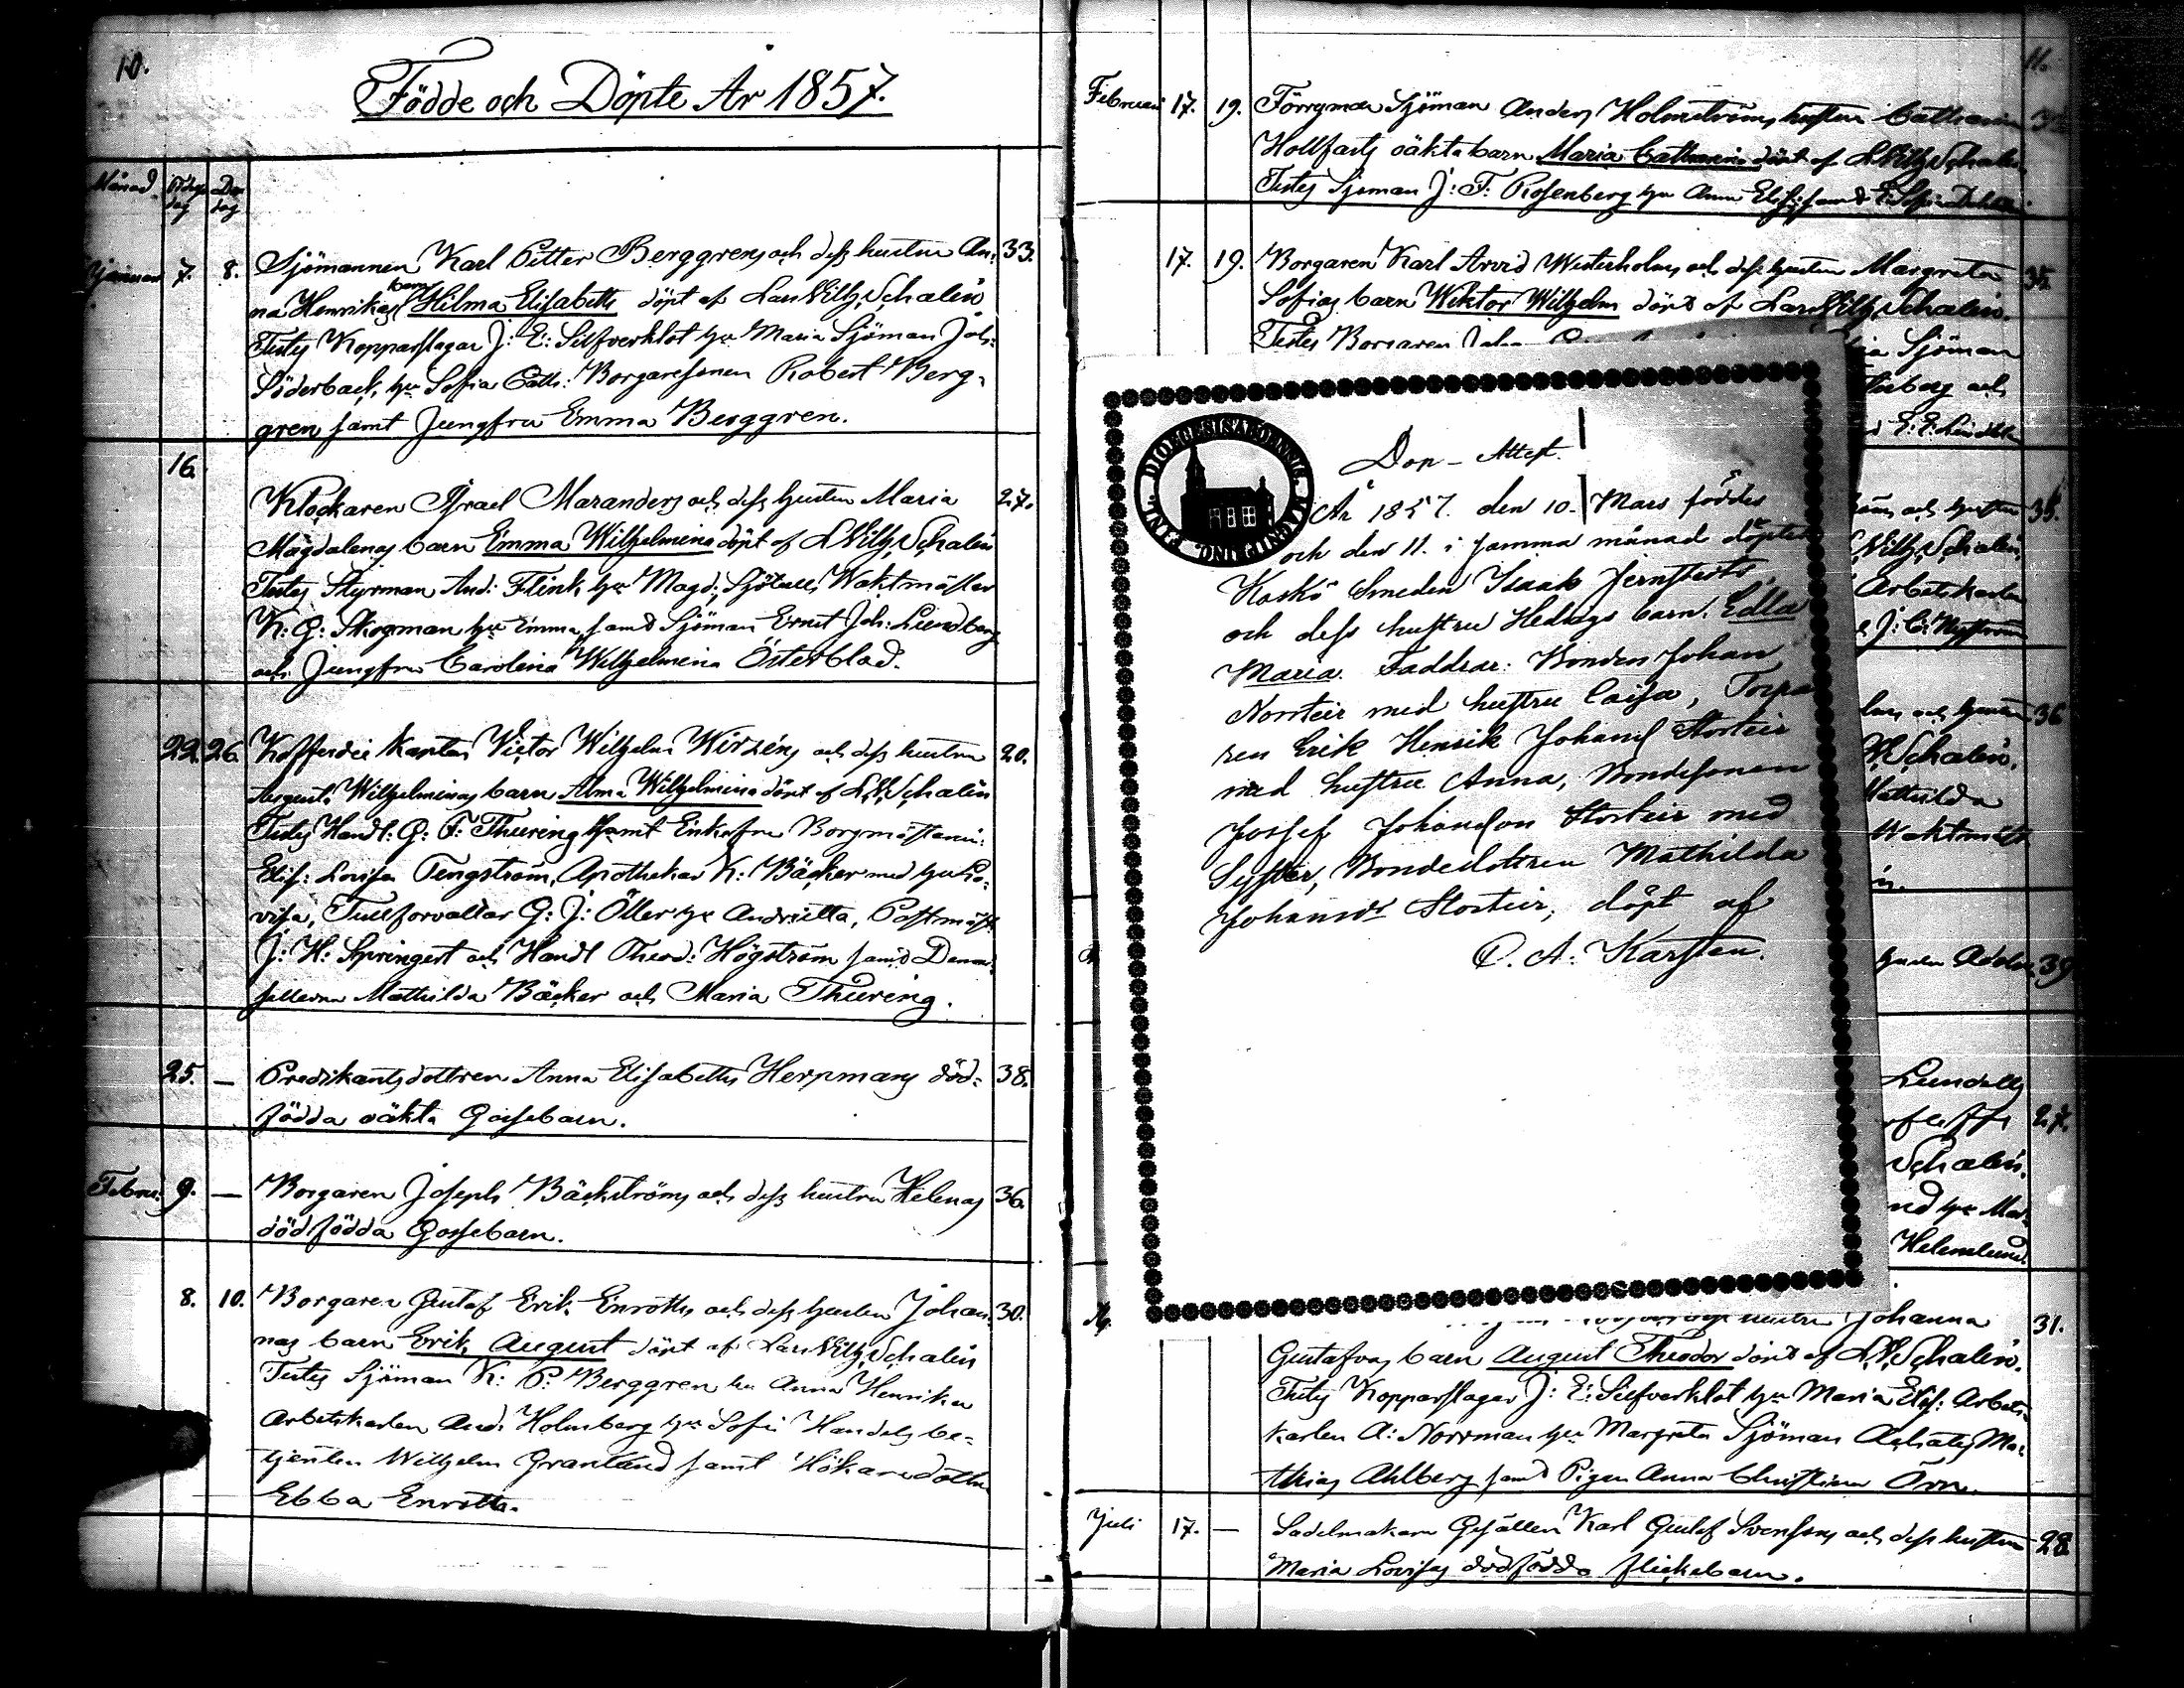 10.
Födde och Döpte År 1857.
Månad Födelse dag Dop dag
Januari 7. 8. Sjömannen Karl Petter Berggrens och dess hustru An- 33.
na Henrikas barn Hilma Elisabeth döpt af Lars Wilh. Schalin
Testes Kopparslagar J: E: Silfverklot hu Maria Sjöman Joh:
Söderback, hu Sofia Cath: Borgaresonen Robert Berg-
gren samt Jungfru Emma Berggren.
16 Klockaren Israel Maranders och dess hustru Maria 27.
Magdalenas barn Emma Wilhelmina döpt af L Wilh. Schalin
Testes Styrman And: Flink hu Magd: Sjötulls Waktmästar
K: G: Skogman hu Emma, samt Sjöman Ernst Joh: Lundberg
och Jungfru Carolina Wilhelmina Österblad.
22. 26. Kofferdie Kapten Victor Wilhelm Wirzéns och dess hustru 20.
Augusta Wilhelminas barn Alma Wilhelmina döpt af L.W. Schalin
Testes Handl: G: F: Thuring samt Enkefru Borgmästarin:
Elis: Lovisa Tengström, Apothekar K: Bäcker med hu Lo-
visa, Tullförvaltar G: J: Öller hu Andrietta, Postmäst
J: H: Springert och Handl Theod: Högström samt Demoi-
sellerna Mathilda Bäcker och Maria Thuring.
25. — Predikantsdottren Anna Elisabeths Herpmans död- 38.
födda oäkta Gossebarn.
Februari 9. — Borgaren Joseph Bäckströms och dess hustru Helenas 36.
dödfödda Gossebarn.
8. 10. Borgaren Gustaf Erik Enroths och dess hustru Johan- 30.
nas barn Erik August döpt af Lars Wilh. Schalin
Testes Sjöman K: P: Berggren hu Anna Henrika
Arbetskarlen And: Holmberg hu Sofia Handels be-
tjenten Wilhelm Granlund samt Hökaredottren
Ebba Enroth.
11.
Februari 17. 19. Förrymda Sjöman Anders Holmströms hustru Catharina
Hollfasts oäkta barn Maria Catharina döpt af L Wilh. Schalin.
Testes Sjöman J: F: Rosenberg hu Anna Elis: samt
17. 19. Borgaren Karl Arvid Westerholms och dess hustru Margreta 35.
Sofias barn Wiktor Wilhelm döpt af Lars Wilh. Schalin.
Testes Borgaren
Sjöman
och
E: E: Lindbl
och hustru 38.
Wilh. Schalin,
Arbetskarlen
J: C: Nyström
och hustru 36
W. Schalin.
Mathilda
Waktmäst
hustru 39
Lundells
27.
Schalin.
hu Mar-
Helenelund.
DIOECESIS ABOENSIS
Dop-Attest.
År 1857. den 10. Mars föddes
och den 11. i samma månad döptes
Kaskö Smeden Isaak Jernstedts
och dess hustru Hedvigs barn. Edla
Maria. Faddrar: Bonden Johan
Norrteir med hustru Caisa, Torpa
ren Erik Henrik Johans Storteir
med hustru Anna, Bondesonen
Jossef Johansson Storteir med
Syster, Bondedottren Mathilda
Johansdr Storteir; döpt af
O. A. Karsten.
hustru Johanna 31.
Gustafvas barn August Theodor döpt af L.W. Schalin.
Testes Kopparslagar J: E: Silfverklot hu Maria Elis: Arbets-
karlen A: Norrman hu Margreta Sjöman Achates Ma-
thias Ahlberg samt Pigan Anna Christina Örn.
Juli 17. — Sadelmakare Gesällen Karl Gustaf Svenssons och dess hustru 28
Maria Lovisas dödfödda flickebarn.